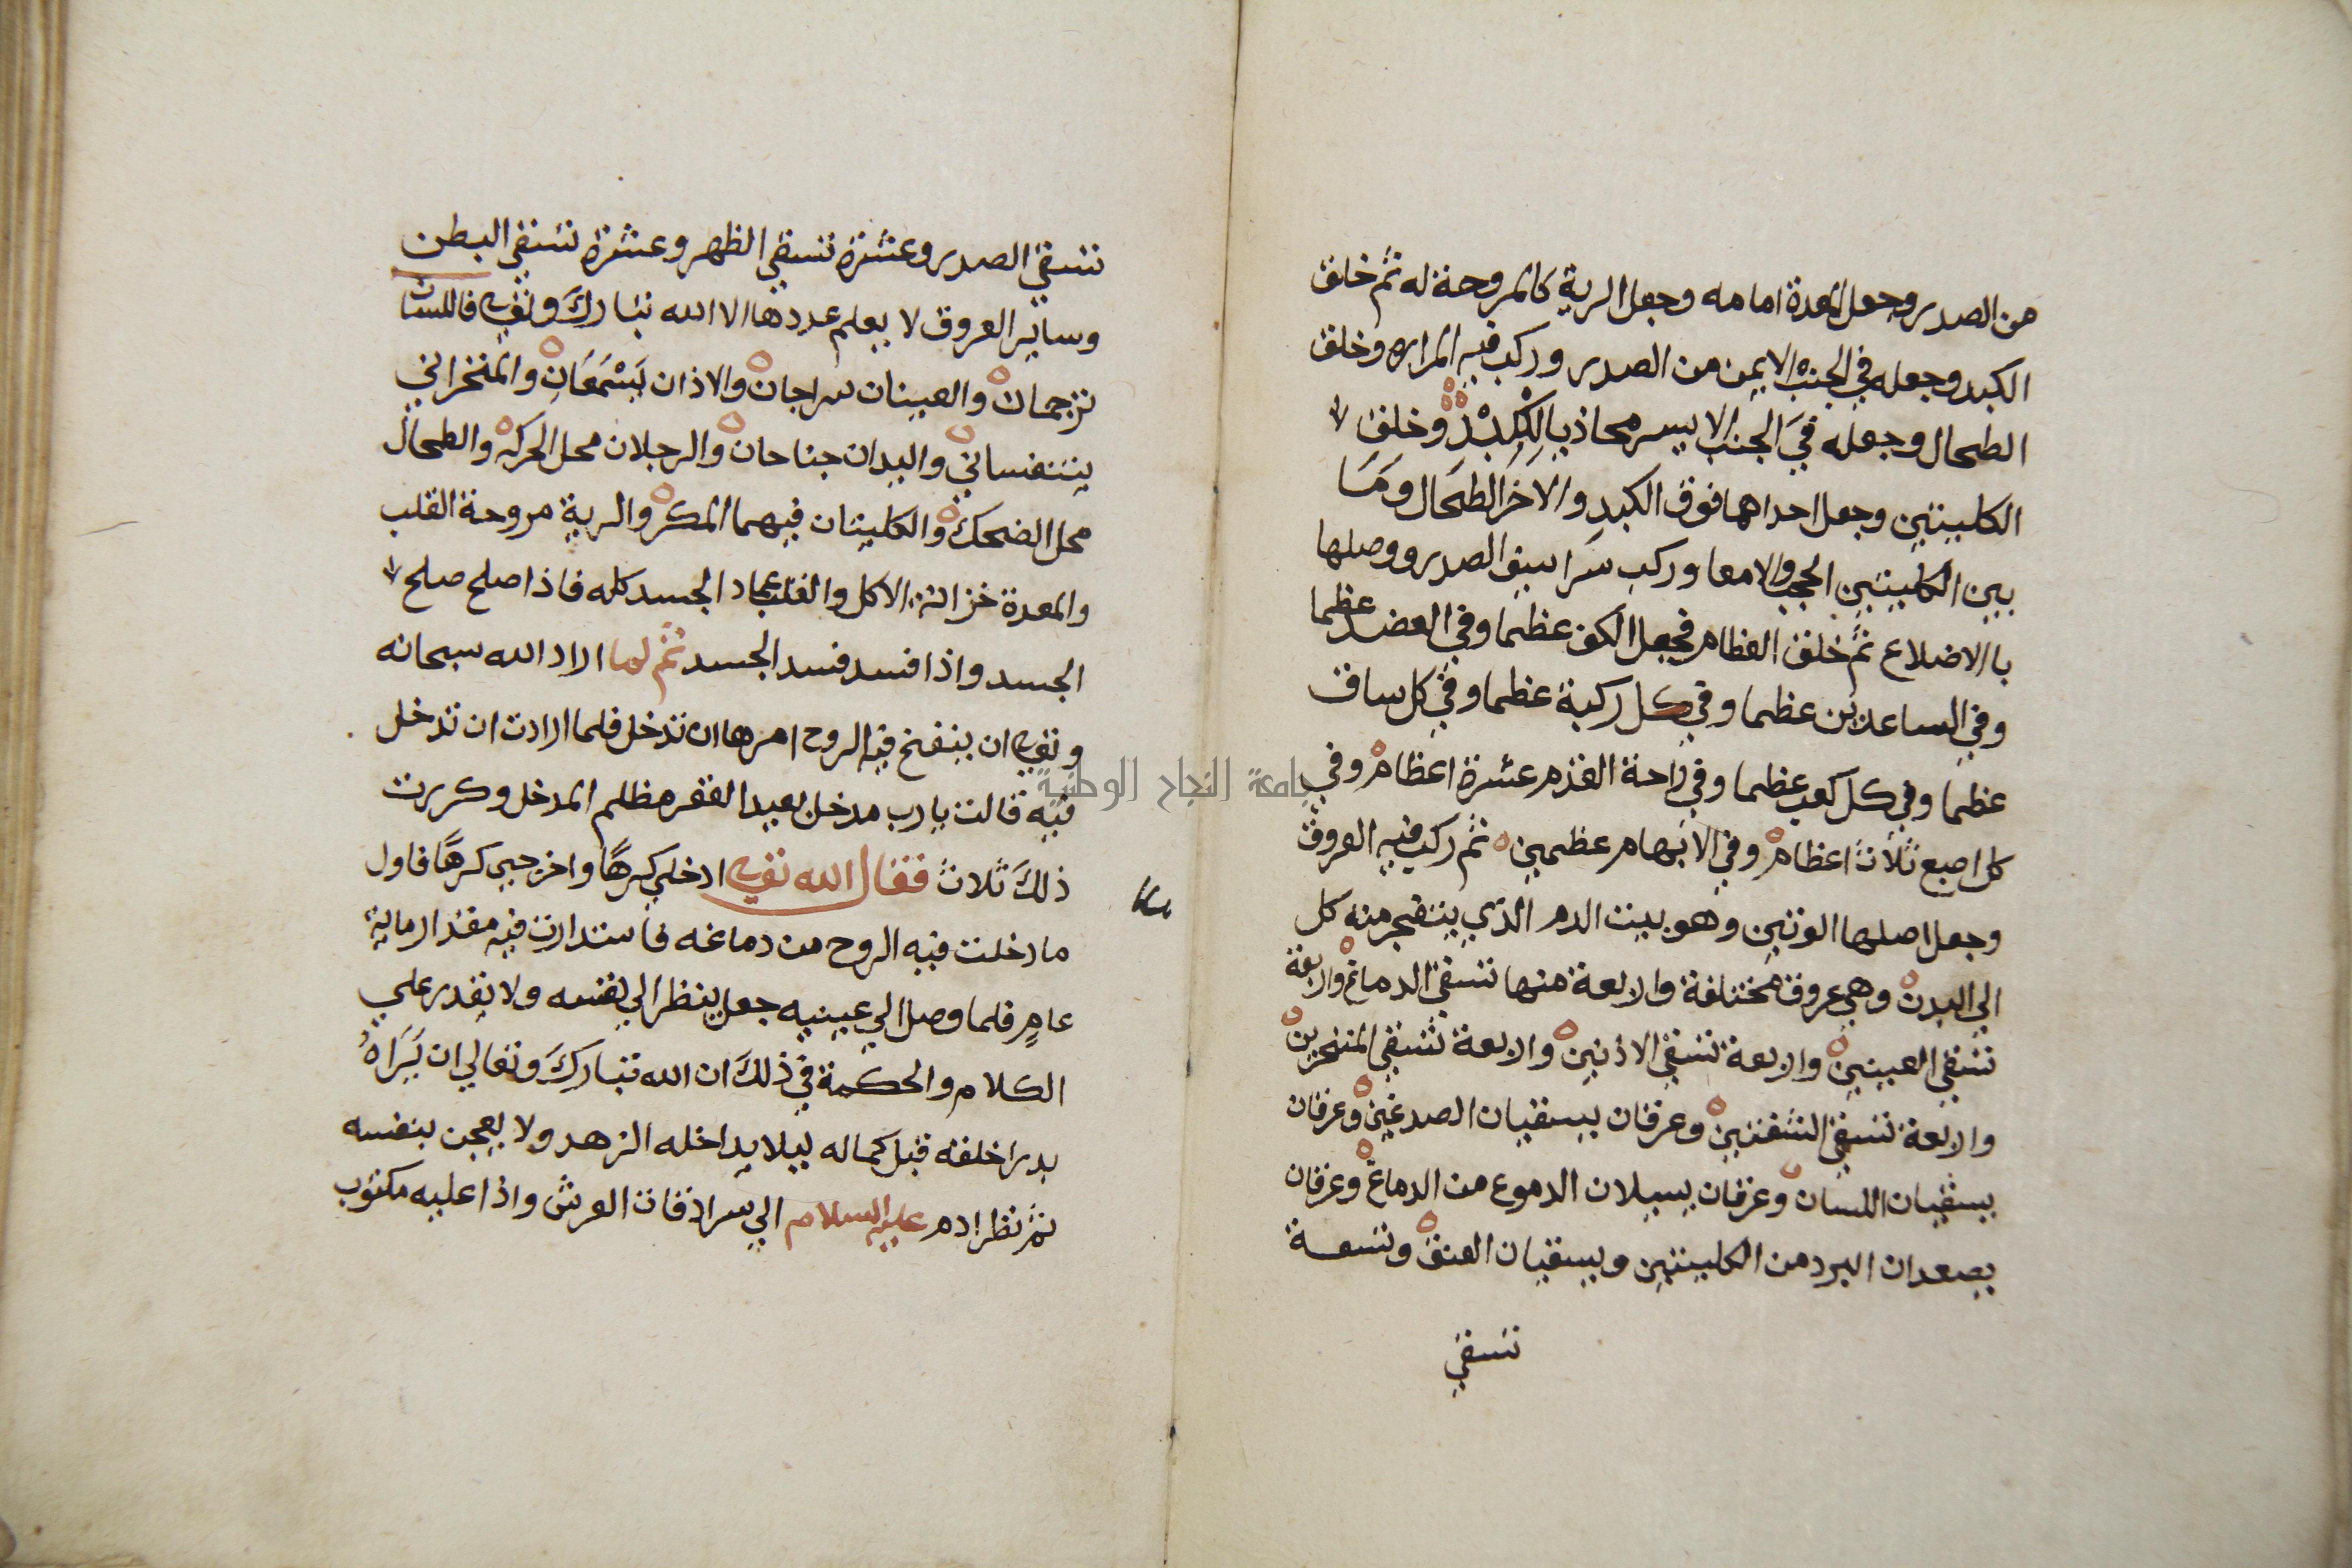 من الصدر وجعل المعدة امامه وجعل الرية كالمروحة له ثم خلق
الكبد وجعله في الجنب الايمن من الصدر وركب فيه المراره وخلق
الطحال وجعله في الجنب الايسر محاذيا لِلْكِبْدِ وخلق
الكليتين وجعل احداهما فوق الكبد والاخر الطحال وما
بين الكليتين الحجب والامعا وركب سراسيف الصدر ووصلها
بالاضلاع ثم خلق العظام فجعل الكف عظما وفي العضد عظما
وفي الساعدين عظما وفي كل ركبة عظما وفي كل ساق
عظما وفي كل كعب عظما وفي راحة القدم عشرة اعظام وفي
كل اصبع ثلاث اعظام وفي الابهام عظمين ثم ركب فيه العروق
وجعل اصلها الوتين وهو بيت الدم الذي يتفجر منه كل
الي البدن وهي عروق مختلفة واربعة منها تسقي الدماغ واربعة
تسقي العينين واربعة تسقي الاذنين واربعة تسقي المنخرين
واربعة تسقي الشفتين وعرقان يسقيان الصدغين وعرقان
يسقيان اللسان وعرقان يسيلان الدموع من الدماغ وعرقان
يصعدان البرد من الكليتين ويسقيان العنق وتسعة
تسقي
تسقي الصدر وعشرة تسقي الظهر وعشرة تسقي البطن
وساير العروق لا يعلم عددها الا الله تبارك وتعالى فاللسان
ترجمان والعينان سراجان والاذان يَسْمَعَانِ والمنخراني
يتنفساني واليدان جناحان والرجلان محل الحركه والطحال
محل الضحك والكليتان فيهما المكر والرية مروحة القلب
والمعدة خزانة الاكل والقلب عماد الجسد كله فاذا صلح صلح
الجسد واذا فسد فسد الجسد ثم لما اراد الله سبحانه
وتعالى ان ينفخ فيه الروح امرها ان تدخل فلما ارادت ان تدخل
فيه قالت يا رب مدخل بعيد القعر مظلم المدخل وكررت
ذلك ثلاث فقال الله تعالى ادخلي كرهًا واخرجي كرهًا فاول
ما دخلت فيه الروح من دماغه فاستدارت فيه مقدار ماية
عامٍ فلما وصل الي عينيه جعل ينظر الي نفسه ولا يقدر علي
الكلام والحكمة في ذلك ان الله تبارك وتعالي ان يَرَاهُ
بدا خلقه قبل كماله ليلا يداخله الزهد ولا يعجبن بنفسه
ثم نظر ادم عليه السلام الي سرادقات العرش واذا عليه مكتوب
جامعة النجاح الوطنية